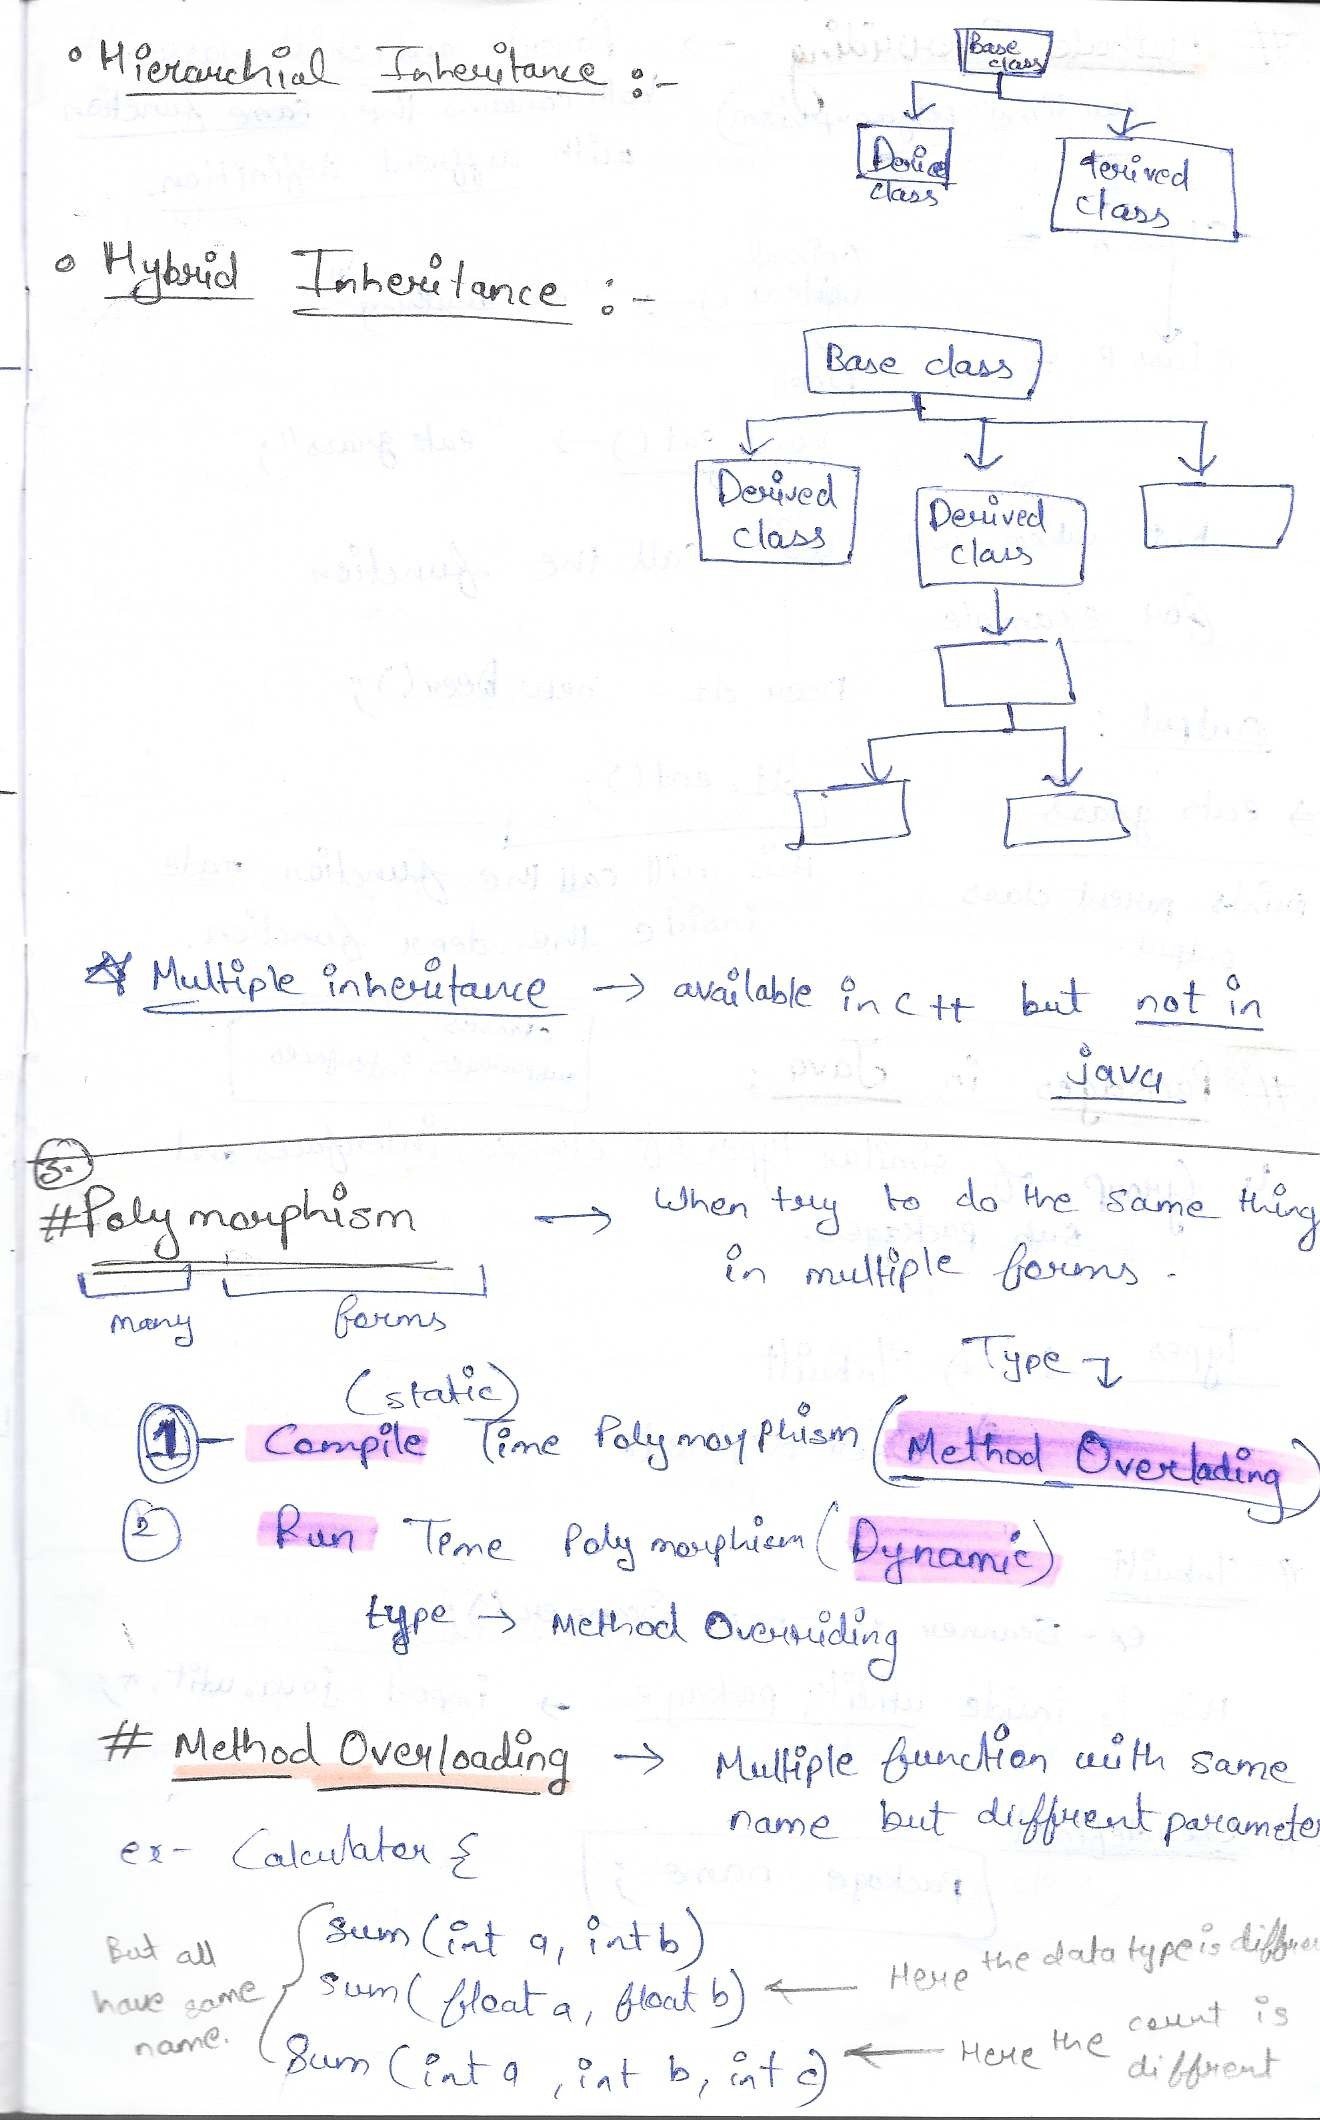 • Hierarchial Inheritance :-
Base class
Derived class
derived class
• Hybrid Inheritance :-
Base class
Derived class
Derived class
Multiple inheritance → available in C++ but not in
java.
3.
# Polymorphism → When try to do the same thing
in multiple forms.
many forms
Type ↴
(static)
1 - Compile Time Polymorphism (Method Overlading)
2 Run Time Polymorphism (Dynamic)
type → Method Overriding
# Method Overloading → Multiple function with same
name but diffrent parameter
ex- Calculator {
sum (int a, int b)
sum (float a, float b) ← Here the data type is
Sum (int a, int b, int c) ← Here the count is diffrent
But all
have same
name.